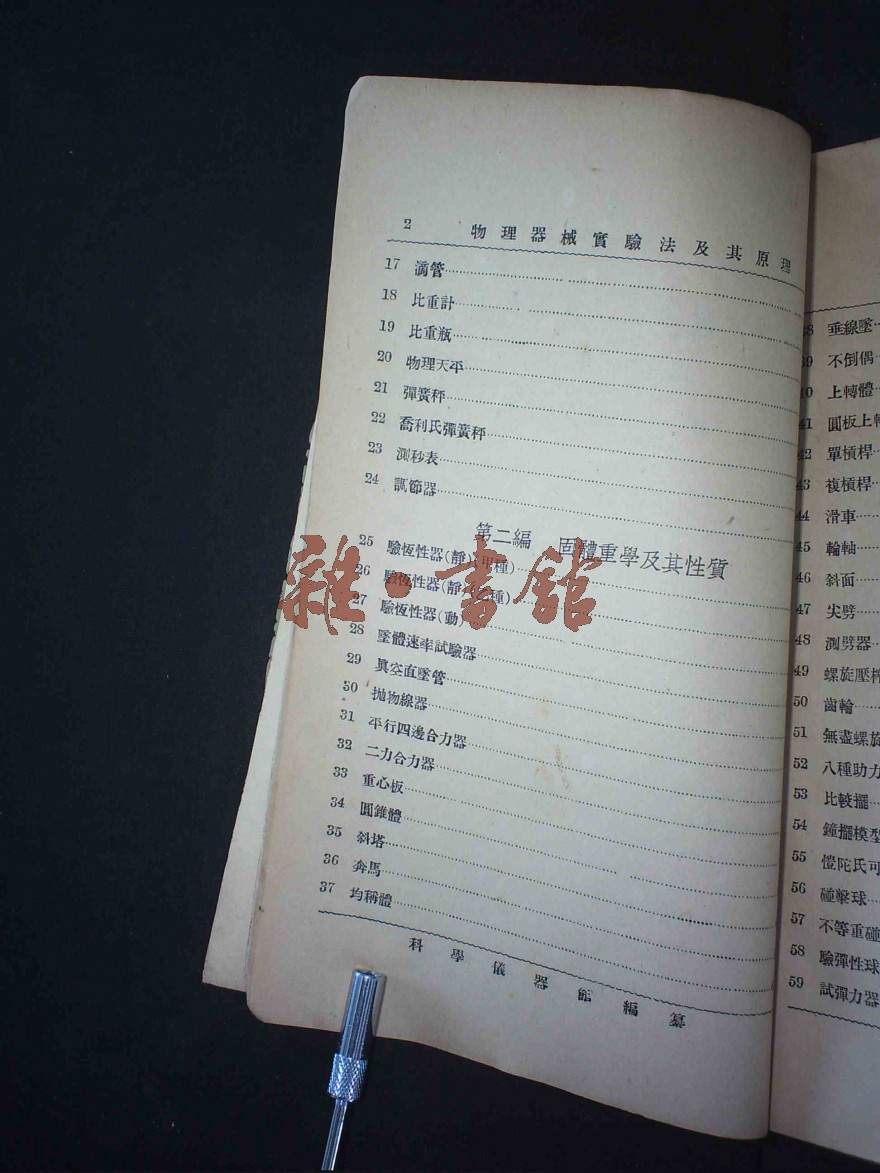 2 物理器械實驗法及其原理
17 滴管
18 比重計
19 比重瓶
20 物理天平
21 彈簧秤
22 喬利氏彈簧秤
23 測秒表
24 調節器
第二編 固體重學及其性質
25 驗恆性器(靜)(甲種)
26 驗恆性器(靜)(乙種)
27 驗恆性器(動)
28 墜體速率試驗器
29 眞空直墜管
30 拋物線器
31 平行四邊合力器
32 二力合力器
33 重心板
34 圓錐體
35 斜塔
36 奔馬
37 均稱體
科學儀器館編纂
雜·書館
38 垂線墜
39 不倒偶
40 上轉體
41 圓板上轉
42 單槓桿
43 複槓桿
44 滑車
45 輪軸
46 斜面
47 尖劈
48 測劈器
49 螺旋壓榨
50 齒輪
51 無盡螺旋
52 八種助力
53 比較擺
54 鐘擺模型
55 愷陀氏可
56 碰擊球
57 不等重碰
58 驗彈性球
59 試彈力器